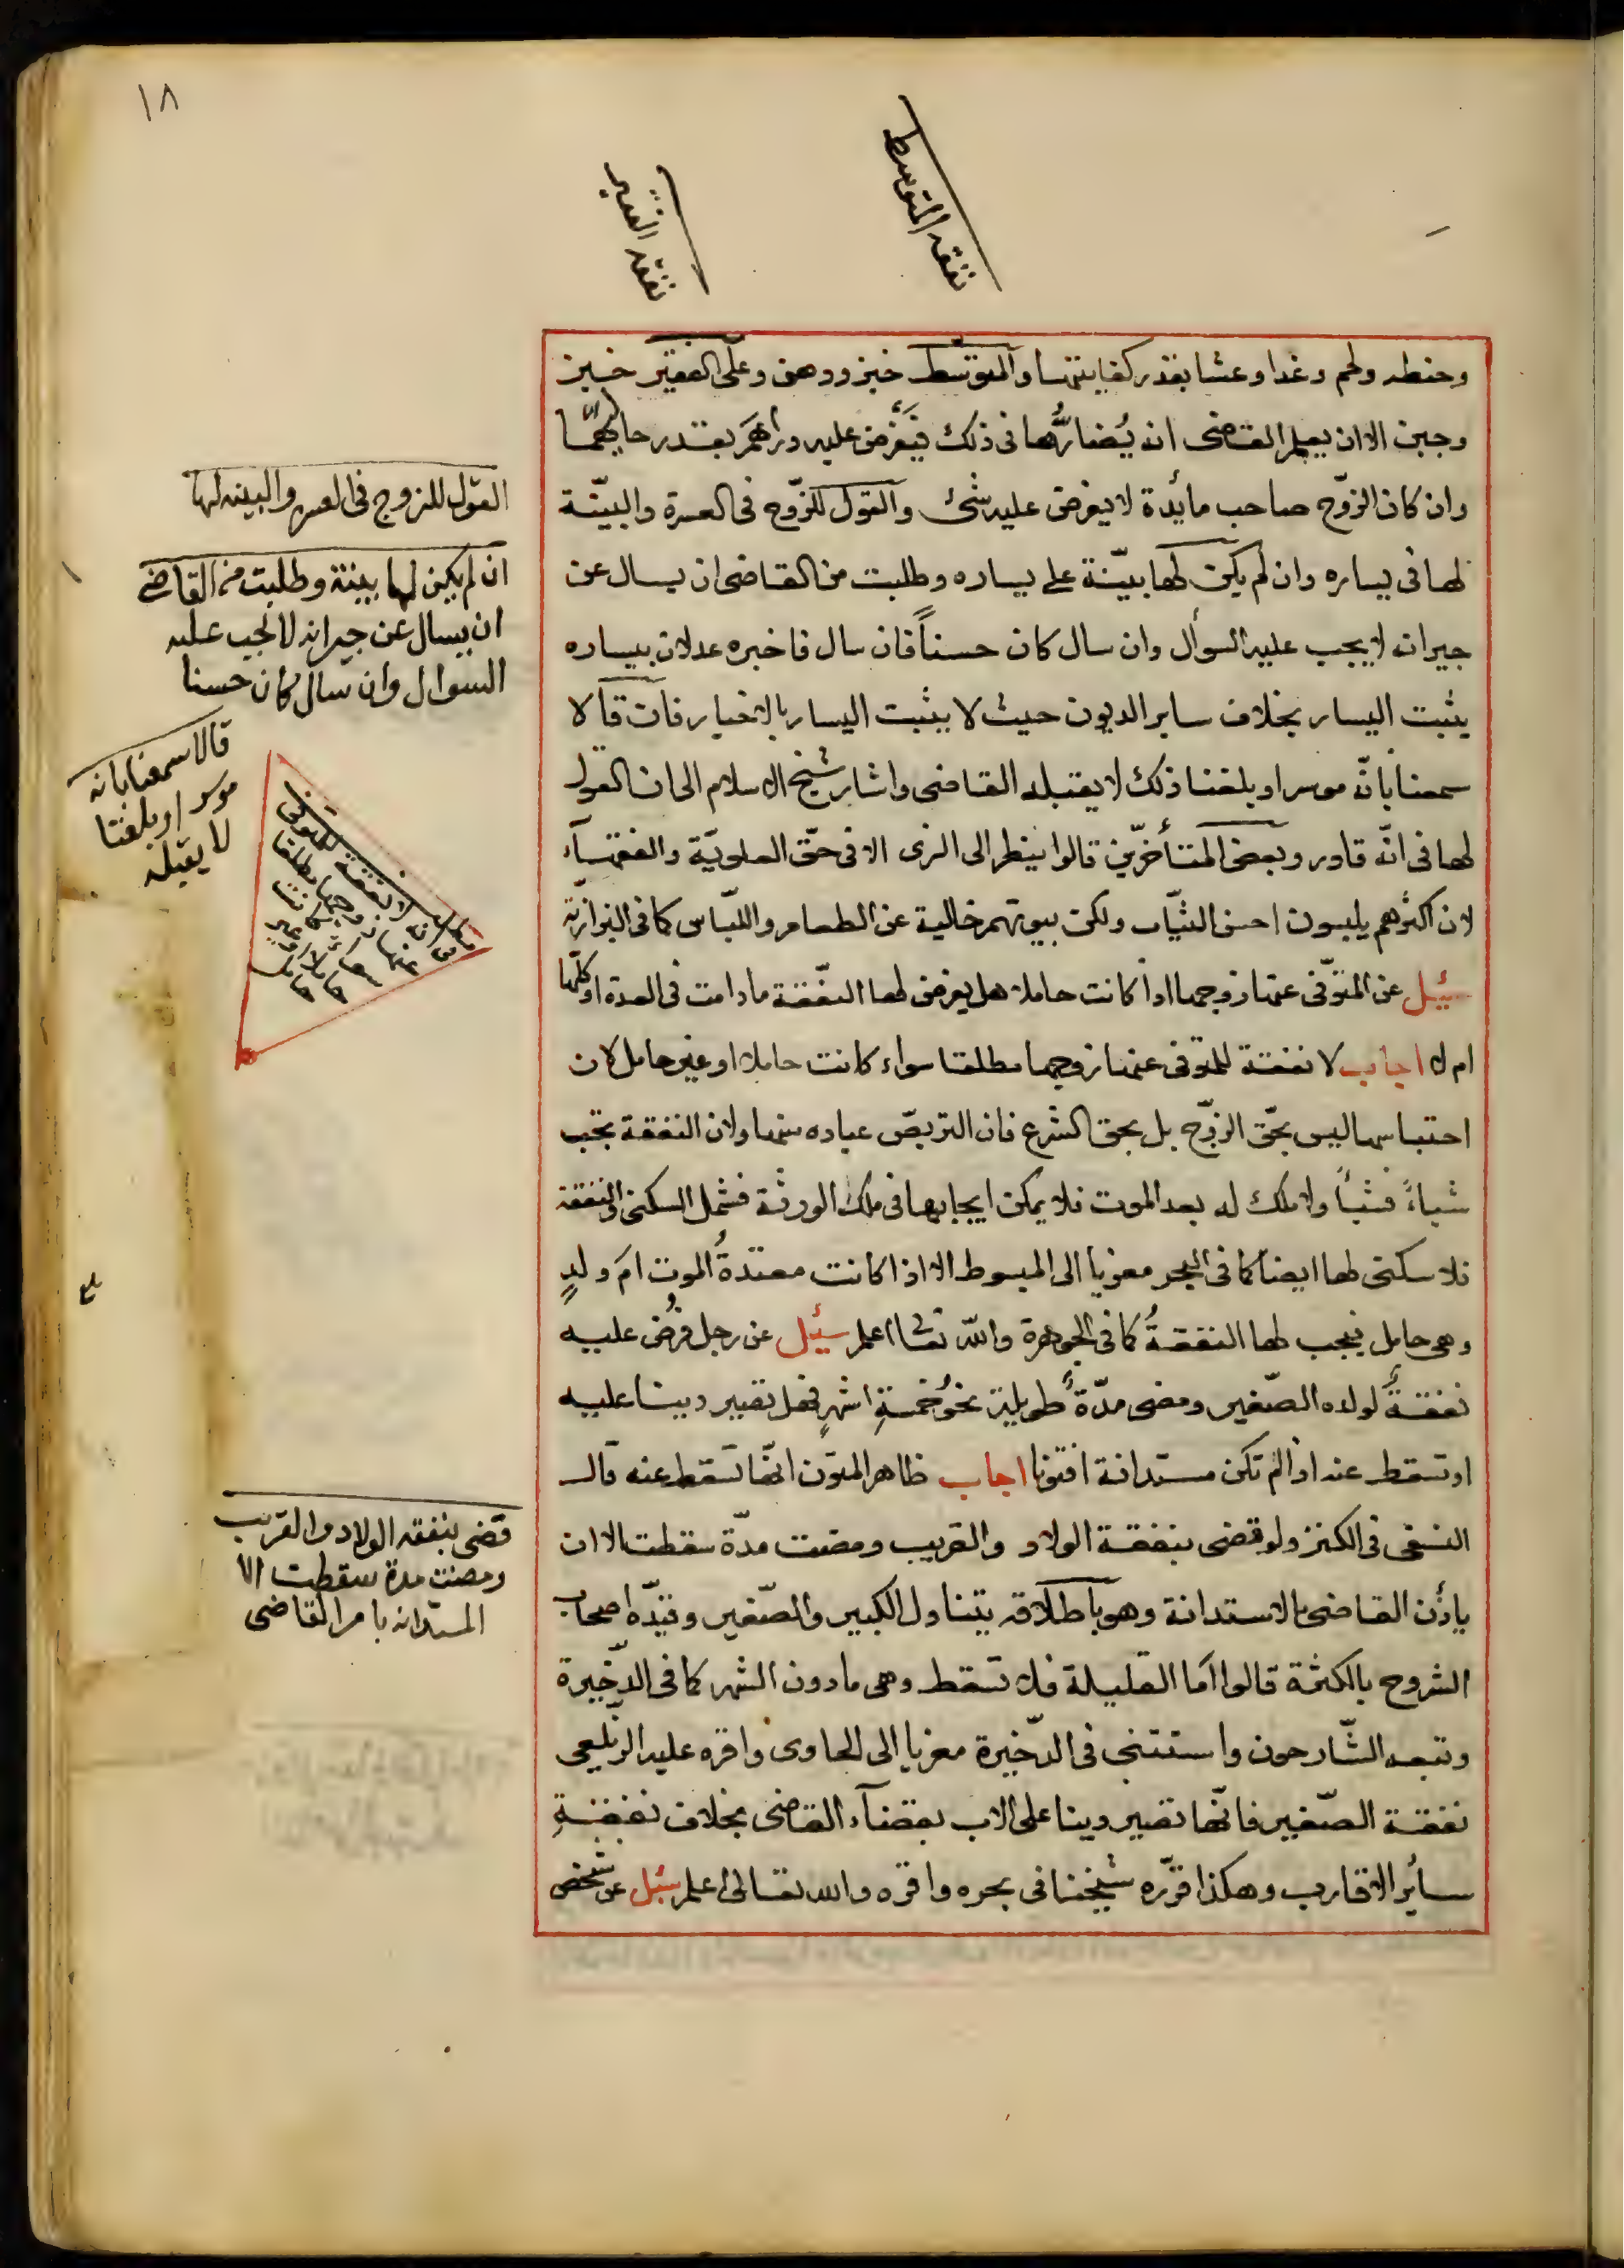 ١٨
نفقه المتوسط
نفقه الفقير
وحنطه ولحم وغدا وعشا بقدر كفايتها والمتوسط خبز ودهن وعلى الفقير خبز
وجبن الا ان يعلم القاضى انه يُضارُّها فى ذلك فيَفرض عليه دراهمَ بقدر حالهما
وان كان الزوّج صاحب مائدة لا يفرض عليه شئ والقول للزّوج فى العسرة والبيّنة
لها فى يساره وان لم يكن لها بيّنة على يساره وطلبت من القاضى ان يسال عن
جيرانه لا يجب عليه السوأل وان سال كان حسناً فان سال فاخبره عدلان بيساره
يثبت اليسار بخلاف ساير الديون حيث لا يثبت اليسار بالاخبار فان قالا
سمعنا بانّه موسر او بلغنا ذلك لا يقبله القاضى واشار شيخ الاسلام الى ان القول
لها فى انّه قادر وبعض المتأخرّين قالوا ينظر الى الزى الا فى حقّ العلويّة والفقهآء
لان اكثرهم يلبسون احسن الثيّاب ولكن بيوتهم خالية عن الطعام واللبّاس كما فى البزازيّة
سئيل عن المتوّفى عنها زوجها اذا كانت حاملا هل يفرض لها النفّقة ما دامت فى العدة او كلّها
ام لا اجاب لا نفقة للمتوفى عنها زوجها مطلقا سواء كانت حاملا او غير حامل لان
احتباسها ليس بحّق الزوّج بل بحق الشرع فان التربصّ عباده منها ولان النفقة تجب
شياءً فشياً ولا ملك له بعد الموت فلا يمكن ايجابها فى ملك الورثة فشمل السكنى والنفقة
فلا سكنى لها ايضا كما فى البحر معزيا الى المبسوط الا اذا كانت معتدةُ الموت امَ ولدٍ
وهى حامل فيجب لها النفقةُ كما فى الجوهرة والله تعالى اعلم سئيل عن رجل فُرض عليه
نفقةً لولاه الصّغير ومضى مدّةً طويلة نحوُ خمسةِ اشهرٍ فهل تصير دينا عليه
او تسقط عنه اذا لم تكن مستدانة افتونا اجاب ظاهر المتون انهّا تسقط عنه قال
النسفى فى الكنز ولو قضى بنفقة الولاد والقريب ومضت مدّة سقطت الا ان
يأذن القاضى بالاستدانة وهو باطلاقه يتناول الكبير والصّغير وقيدّه اصحاب
الشروح بالكثرة قالوا امّا القليلة فلا تسقط وهى ما دون الشهر كما فى الذّخيرة
وتبعه الشّارحون واستثنى فى الذّخيرة معزيا الى الحاوى واقره عليه الزّيلعى
نفقة الصّغير فانّها تصير دينا على الاب بقضآء القاضى بخلاف نفقةِ
سائر الاقارب وهكذا قرّره شيخنا فى بحره واقره والله تعالى اعلم سئل عن شخص
القول للزوج فى العسره والبينه لها
ان لم يكن لها بينة وطلبت من القاضى
ان يسال عن جيرانه لا يجب عليه
السوال وان سال كان حسنا
قالا سمعنا بانه
موسر او بلغنا
لا يقبله
مطلب
فى انه لا نفقة للمتوفى
عنها زوجها مطلقا
سواء كانت
حاملا او غير
حامل
قضى بنفقه الولاد والقريب
ومضت مدة سقطت الا
المستدانه بامر القاضى